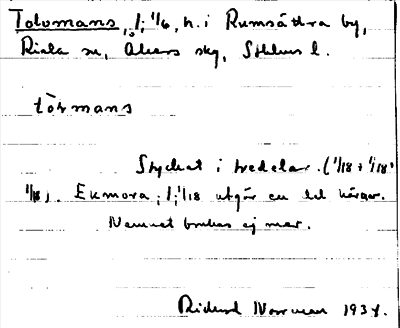 Tolvmans, /; 1/6, h. i Rumsättra by,
Riala sn, Åkers skg, Sthlms l.
tòrmans
Styckat i tredelar. (1/18 + 1/18 +
1/18). Ekmora; /; 1/18 utgör en del härav.
Namnet brukas ej mer.
Rickard Norrman 1934.